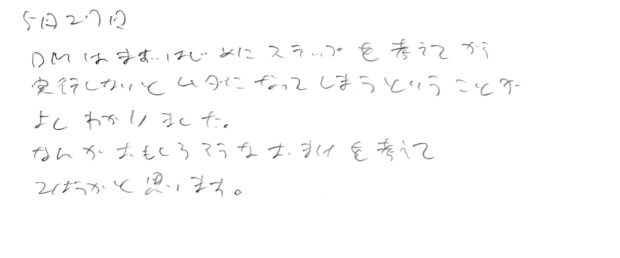 5月27日
DMはまずはじめにステップを考えてから
実行しないとムダになってしまうということが
よくわかりました。
なんかおもしろそうなおまけを考えて
みようかと思います。